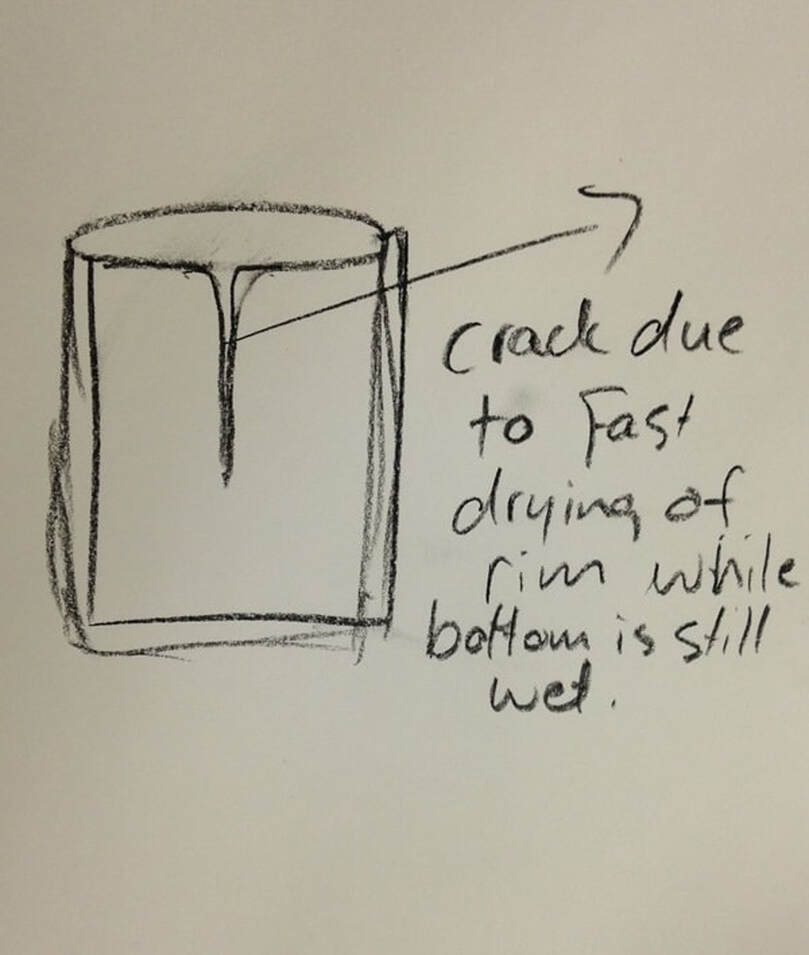 crack due
to Fast
drying of
rim while
bottom is still
wet.